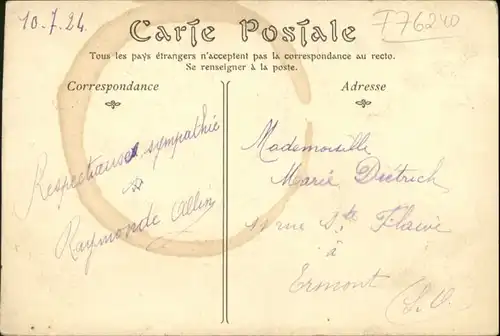 10.7.24
F76240
Carte Postale
Tous les pays étrangers n'acceptent pas la correspondance au recto.
Se renseigner à la poste.
Correspondance
Respectueuse sympathie
Raymonde Allin
Adresse
Mademoiselle
Marie Diétrich
11 rue Ste Flaive
à
Ermont
(S.O.)